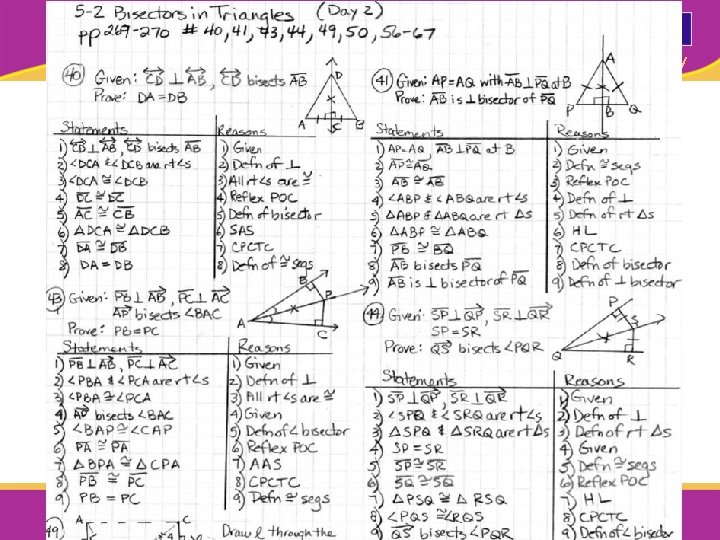 5-2 Bisectors in Triangles (Day 2)
pp 267-270 # 40, 41, 43, 44, 49, 50, 56-67
40 Given: CD ⊥ AB, CD bisects AB
Prove: DA = DB
D
A C B
Statements Reasons
1) CD ⊥ AB, CD bisects AB 1) Given
2) ∠DCA & ∠DCB are rt ∠s 2) Defn of ⊥
3) ∠DCA ≅ ∠DCB 3) All rt ∠s are ≅
4) DC ≅ DC 4) Reflex POC
5) AC ≅ CB 5) Defn of bisector
6) △DCA ≅ △DCB 6) SAS
7) DA ≅ DB 7) CPCTC
8) DA = DB 8) Defn of ≅ segs
41 Given: AP = AQ with AB ⊥ PQ at B
Prove: AB is ⊥ bisector of PQ
A
P B Q
Statements Reasons
1) AP = AQ, AB ⊥ PQ at B 1) Given
2) AP ≅ AQ 2) Defn ≅ segs
3) AB ≅ AB 3) Reflex POC
4) ∠ABP & ∠ABQ are rt ∠s 4) Defn of ⊥
5) △ABP & △ABQ are rt △s 5) Defn of rt △s
6) △ABP ≅ △ABQ 6) HL
7) PB ≅ BQ 7) CPCTC
8) AB bisects PQ 8) Defn of bisector
9) AB is ⊥ bisector of PQ 9) Defn of ⊥ bisector
43 Given: PB ⊥ AB, PC ⊥ AC
AP bisects ∠BAC
Prove: PB = PC
B
P
A
C
Statements Reasons
1) PB ⊥ AB, PC ⊥ AC 1) Given
2) ∠PBA & ∠PCA are rt ∠s 2) Defn of ⊥
3) ∠PBA ≅ ∠PCA 3) All rt ∠s are ≅
4) AP bisects ∠BAC 4) Given
5) ∠BAP ≅ ∠CAP 5) Defn of ∠ bisector
6) PA ≅ PA 6) Reflex POC
7) △BPA ≅ △CPA 7) AAS
8) PB ≅ PC 8) CPCTC
9) PB = PC 9) Defn ≅ segs
44 Given: SP ⊥ QP, SR ⊥ QR
SP = SR
Prove: QS bisects ∠PQR
P
S
Q R
Statements Reasons
1) SP ⊥ QP, SR ⊥ QR 1) Given
2) ∠SPQ & ∠SRQ are rt ∠s 2) Defn of ⊥
3) △SPQ & △SRQ are rt △s 3) Defn of rt △s
4) SP = SR 4) Given
5) SP ≅ SR 5) Defn ≅ segs
6) SQ ≅ SQ 6) Reflex POC
7) △PSQ ≅ △RSQ 7) HL
8) ∠PQS ≅ ∠RQS 8) CPCTC
9) QS bisects ∠PQR 9) Defn of ∠ bisector
49 A C Draw ℓ through the